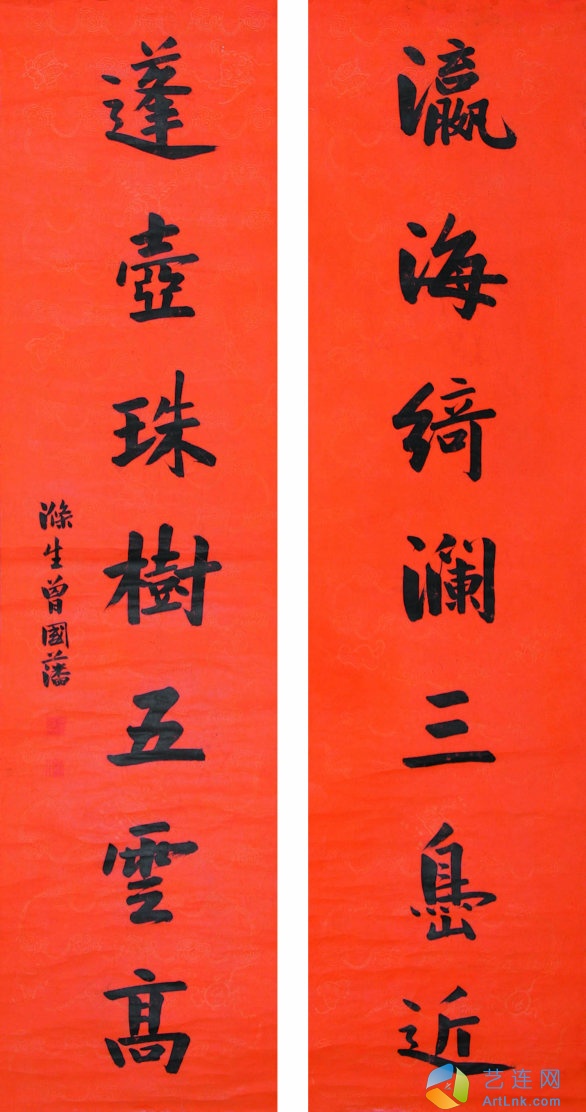 瀛海綺瀾三島近
蓬壺珠樹五雲高
滌生曾國藩
艺连网
ArtLnk.com